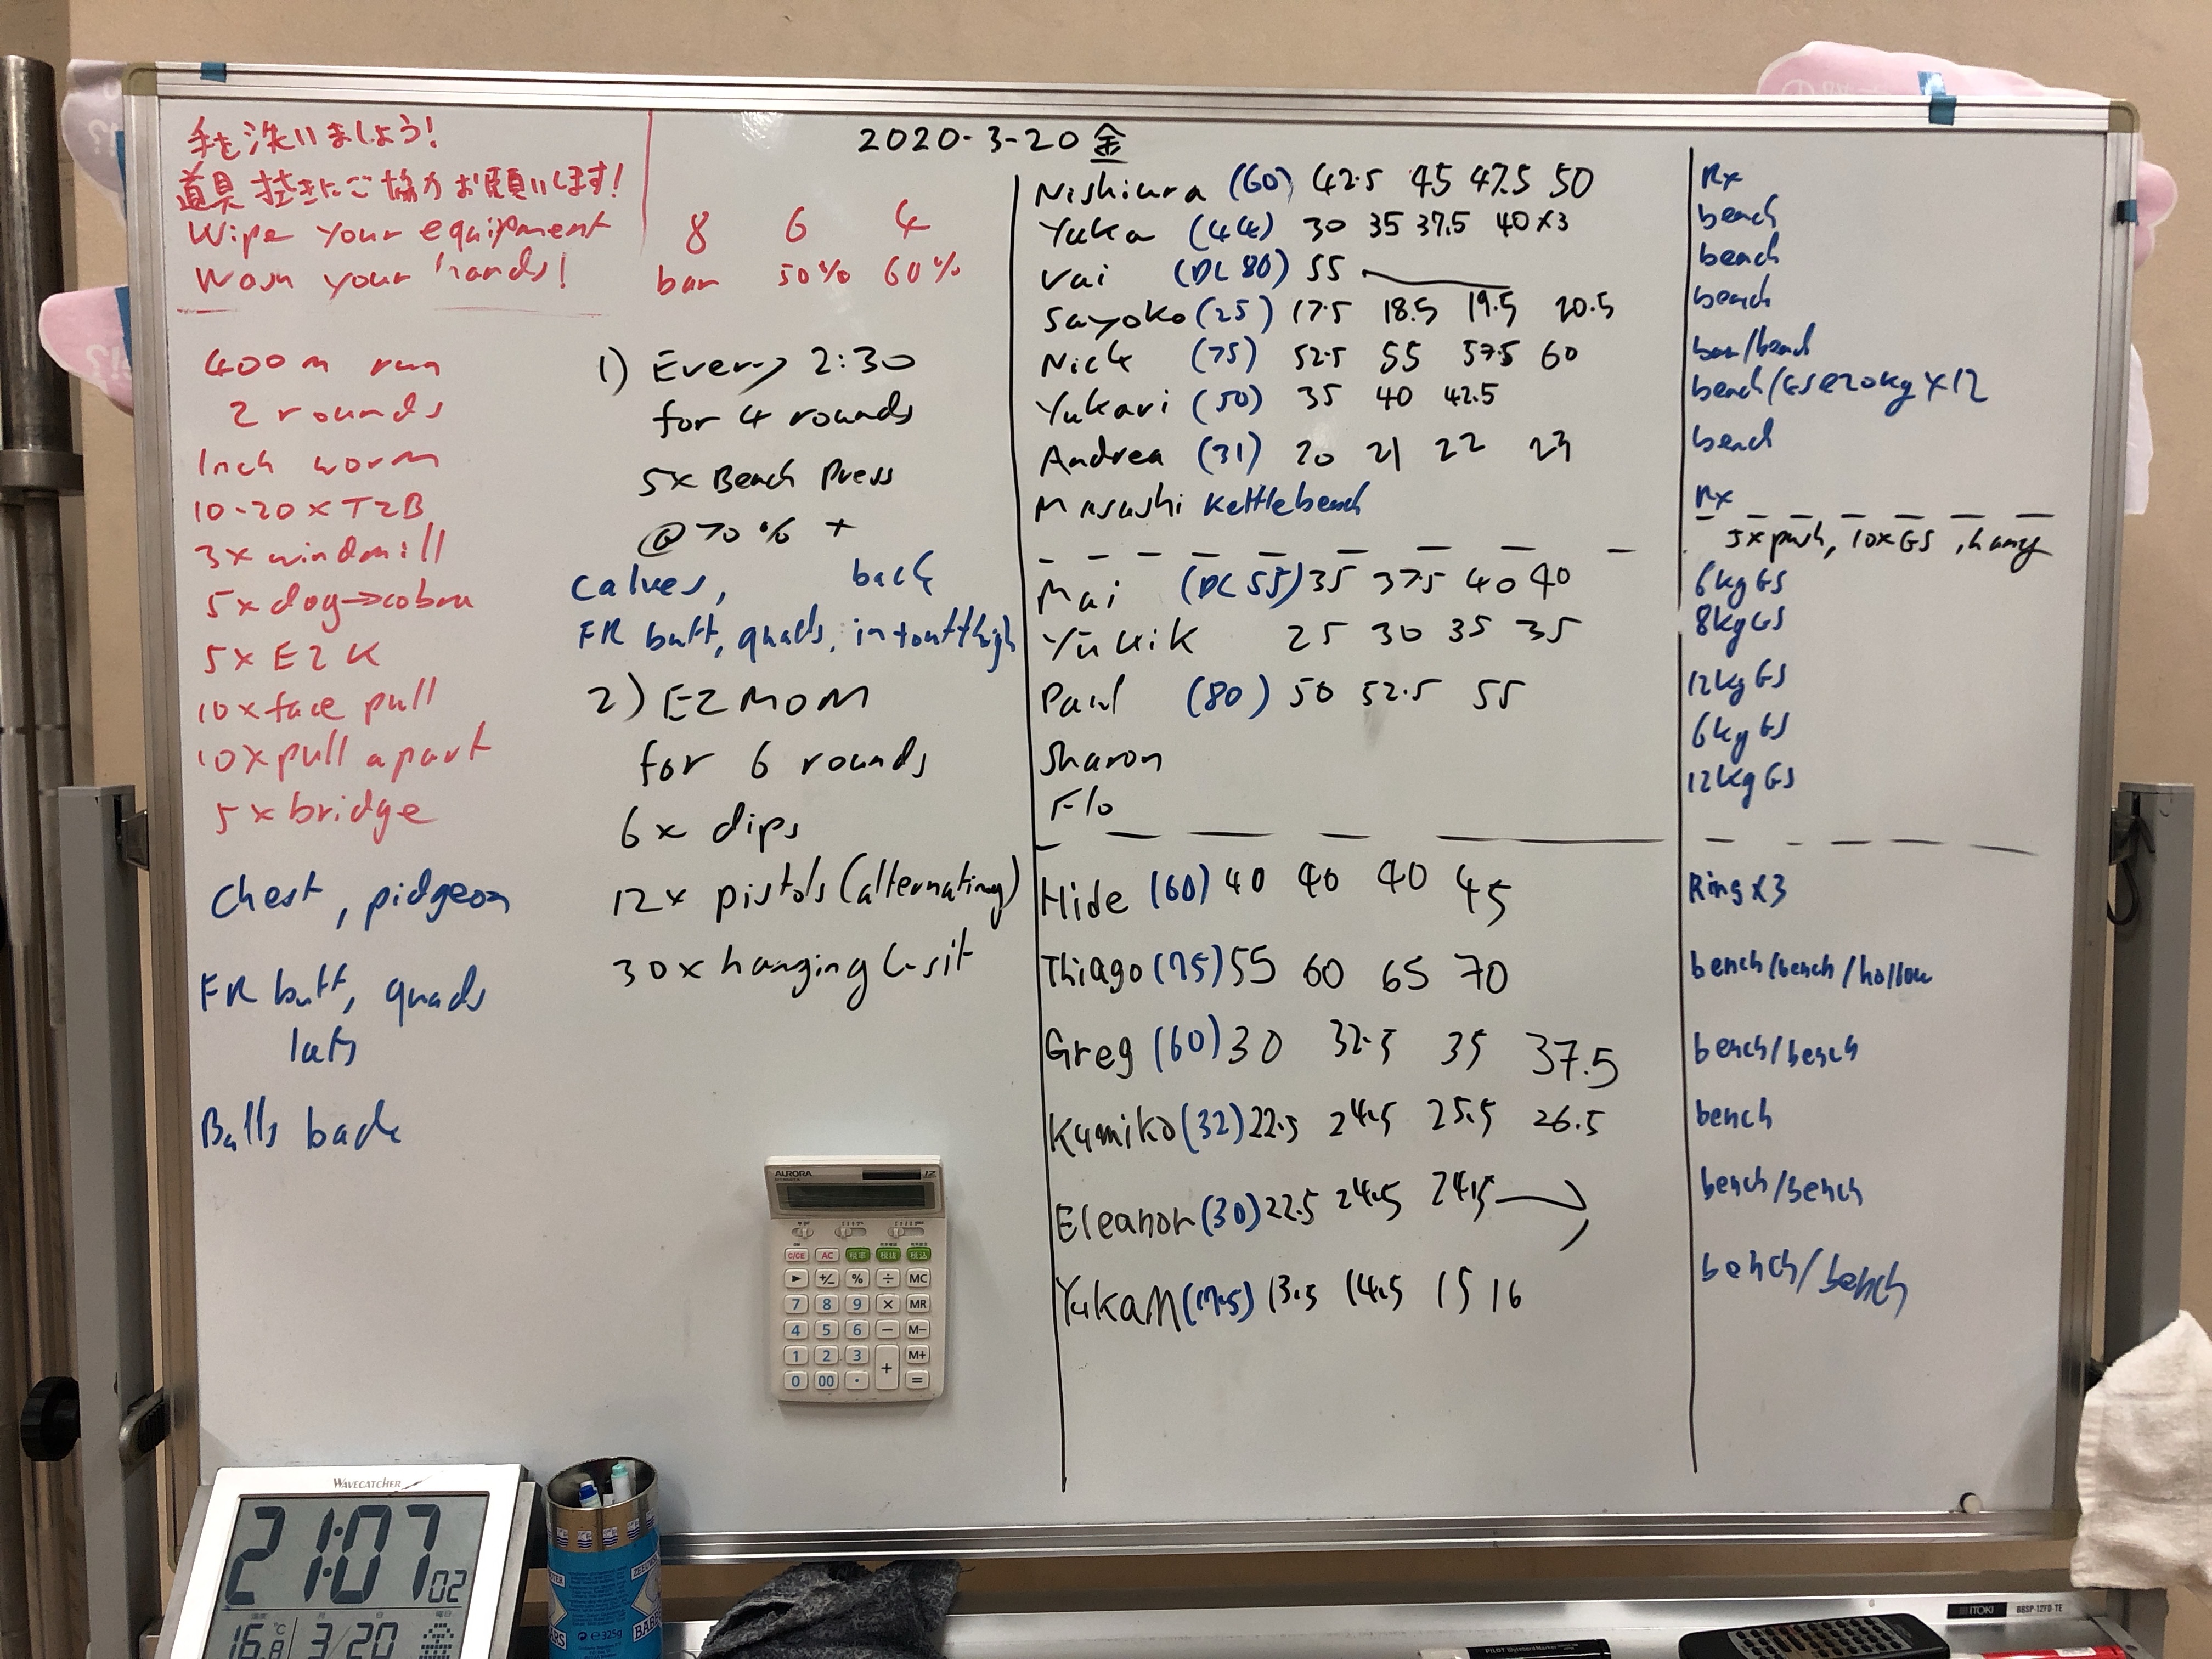 手を洗いましょう!
道具拭きにご協力お願いします!
Wipe your equipment
Wash your hands!
8 6 4
bar 50% 60%
400m run
2 rounds
Inch worm
10-20 x T2B
3x windmill
5x dog→cobra
5x E2K
10x face pull
10x pull apart
5x bridge
Chest, pidgeon
FR butt, quads
lats
Balls back
2020-3-20 金
1) Every 2:30
for 4 rounds
5x Bench Press
@70% +
calves, back
FR butt, quads, in+out thigh
2) E2MOM
for 6 rounds
6x dips
12x pistols (alternating)
30x hanging L-sit
Nishiura (60) 42.5 45 47.5 50 Rx
Yuka (44) 30 35 37.5 40x3 bench
Vai (DL 80) 55 bench
Sayoko (25) 17.5 18.5 19.5 20.5 bench
Nick (75) 52.5 55 57.5 60 bar/bench
Yukari (50) 35 40 42.5 bench/GS@20kg x12
Andrea (31) 20 21 22 23 bench
Masashi Kettlebench Rx
5x push, 10xGS, hang
Mai (DL 55) 35 37.5 40 40 6kg GS
Yukik 25 30 35 35 8kg GS
Paul (80) 50 52.5 55 12kg GS
Sharon 6kg GS
Flo 12kg GS
Hide (60) 40 40 40 45 Ring x3
Thiago (75) 55 60 65 70 bench/bench/hollow
Greg (60) 30 32.5 35 37.5 bench/bench
Kumiko (32) 22.5 24.5 25.5 26.5 bench
Eleanor (30) 22.5 24.5 24.5 → bench/bench
YukaM (17.5) 13.5 14.5 15 16 bench/bench
AURORA
12
C/CE AC 税率 税抜 税込
► +/- % ÷ MC
7 8 9 × MR
4 5 6 − M−
1 2 3 + M+
0 00 · =
WAVECATCHER
21:07 02
温度 月 日 曜日
16.8 °C 3/20 金
325g
ITOKI BBSP-12FD-TE
PILOT